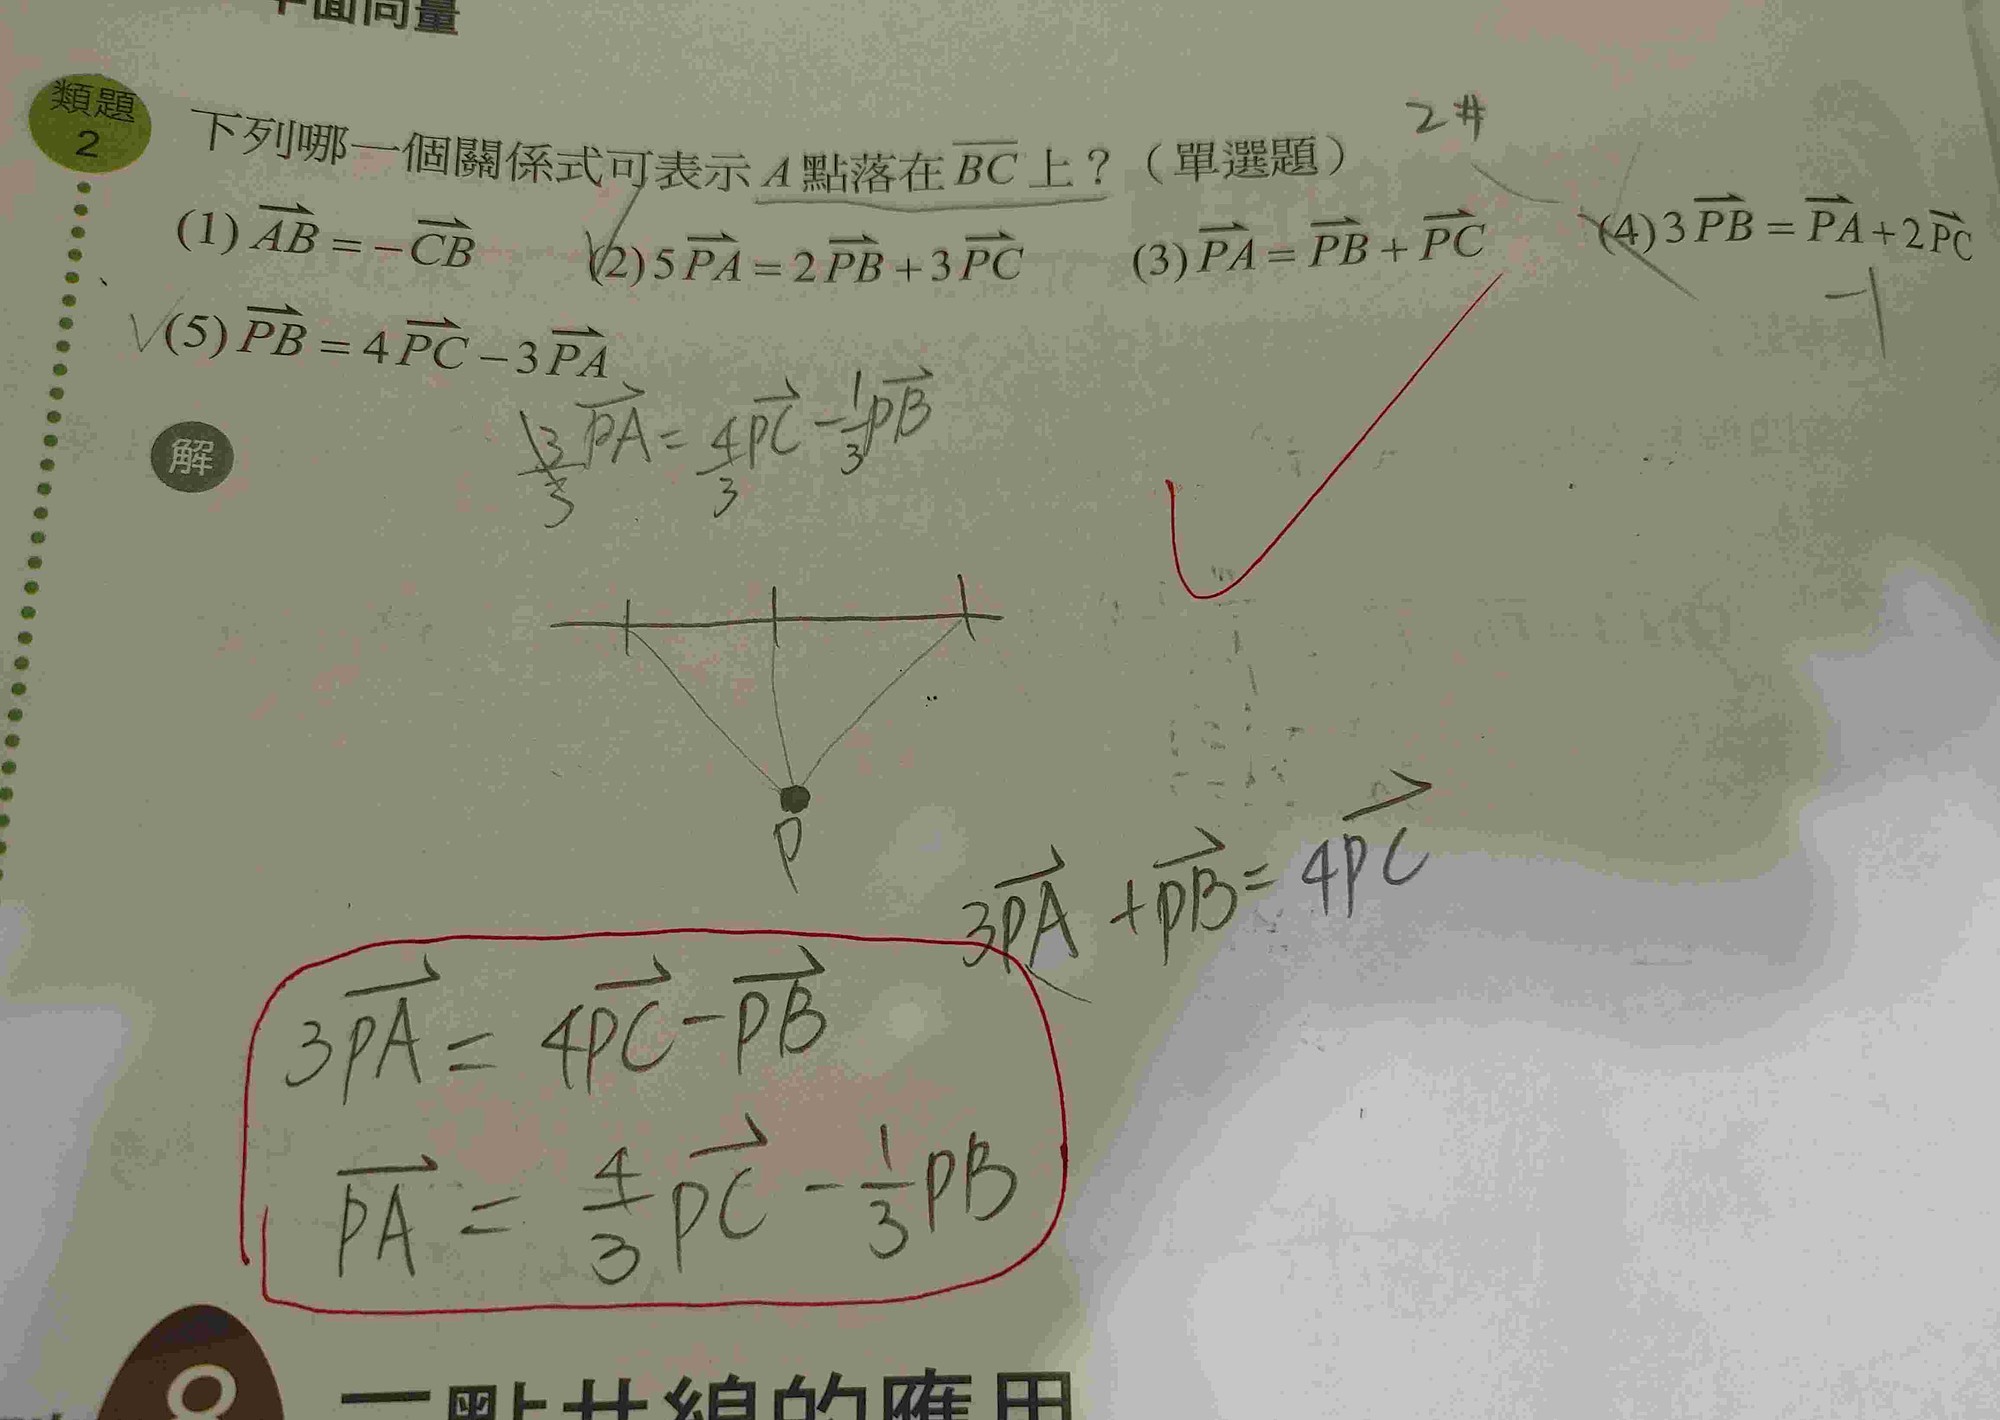 平面向量
類題
2
下列哪一個關係式可表示 A 點落在 BC 上？（單選題） 2#
(1) AB = -CB (2) 5PA = 2PB + 3PC (3) PA = PB + PC (4) 3PB = PA + 2PC
-1
(5) PB = 4PC - 3PA
解
3/3 PA = 4/3 PC - 1/3 PB
P
3PA + PB = 4PC
3PA = 4PC - PB
PA = 4/3 PC - 1/3 PB
三點共線的應用